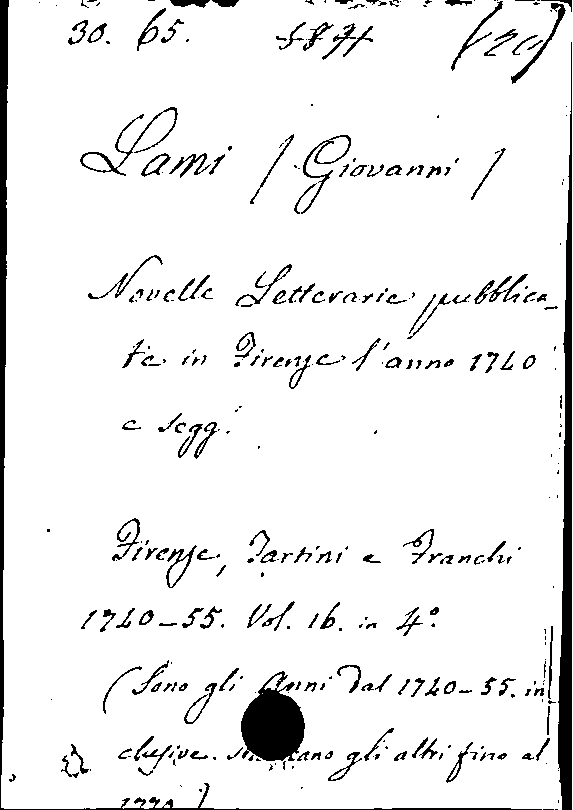 30. 65.
Lami / Giovanni /
Novelle Letterarie pubblica_
te in Firenze l'anno 1740
e segg.
Firenze, Tartini e Franchi
1740-55. Vol. 16. in 4°.
(Sono gli Anni dal 1740-55. in
clusive. gli altri fino al
1770.)